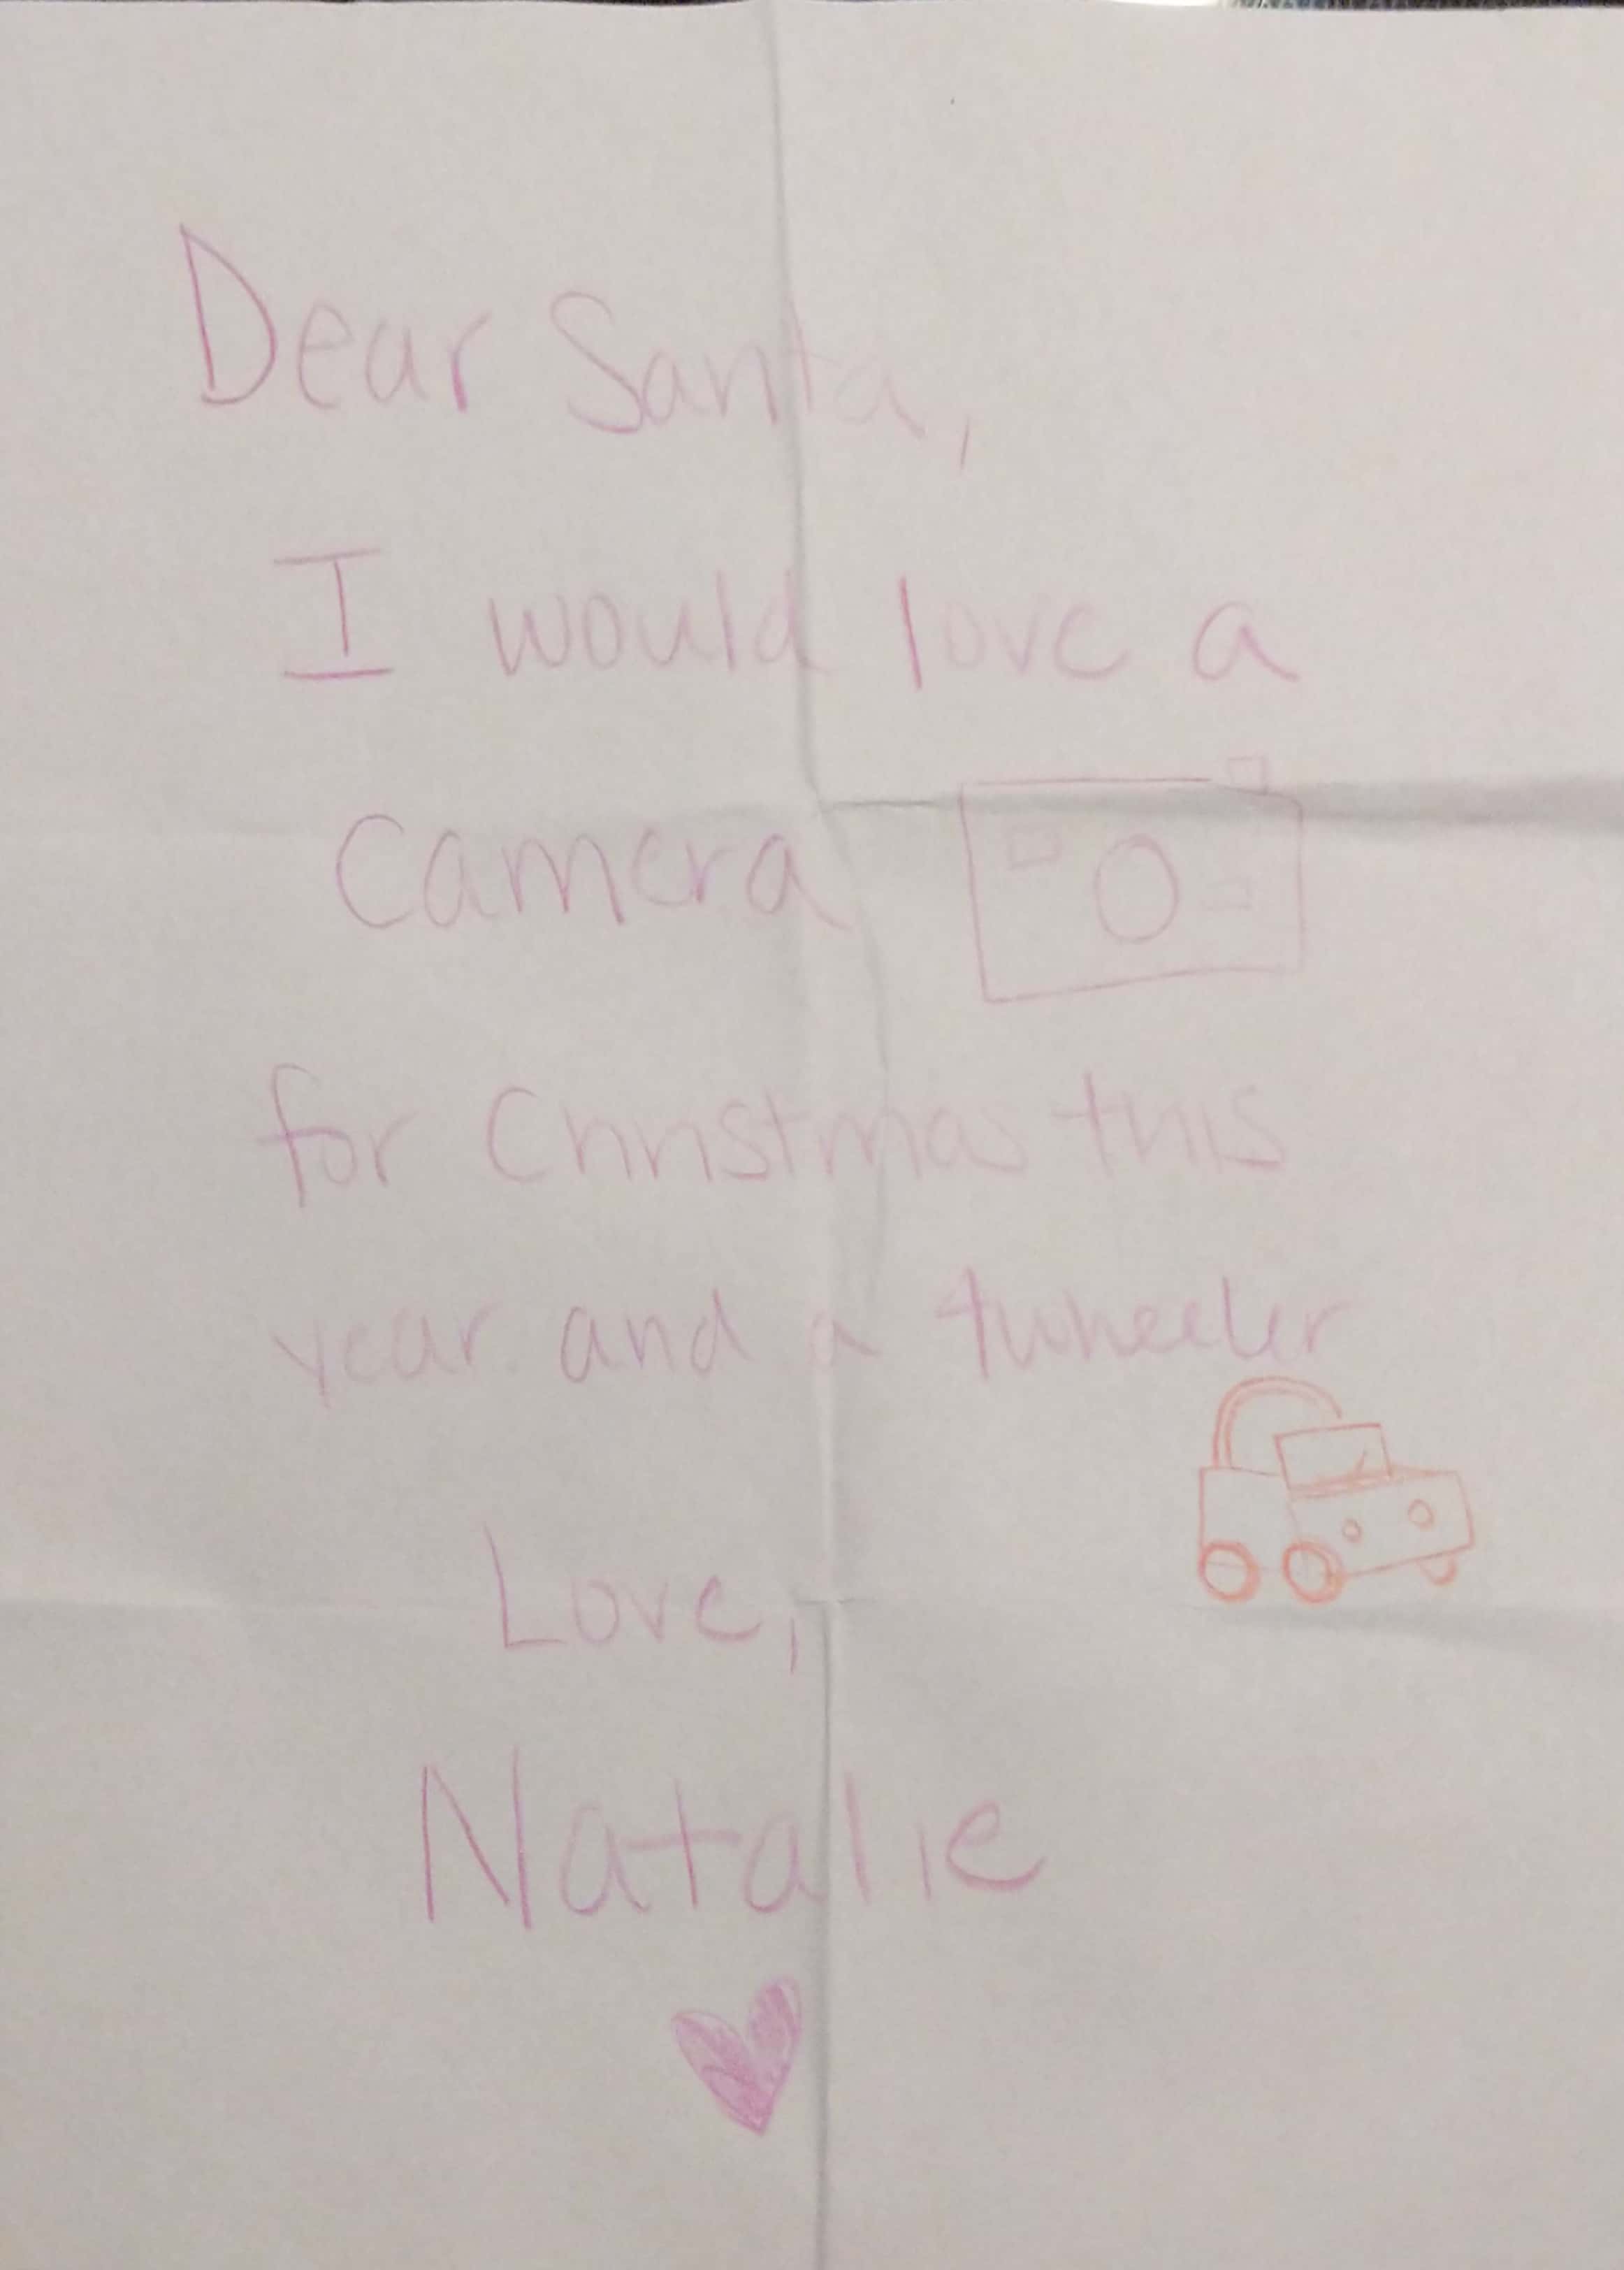 Dear Santa,
I would love a
Camera
for Christmas this
year and a 4wheeler
Love,
Natalie